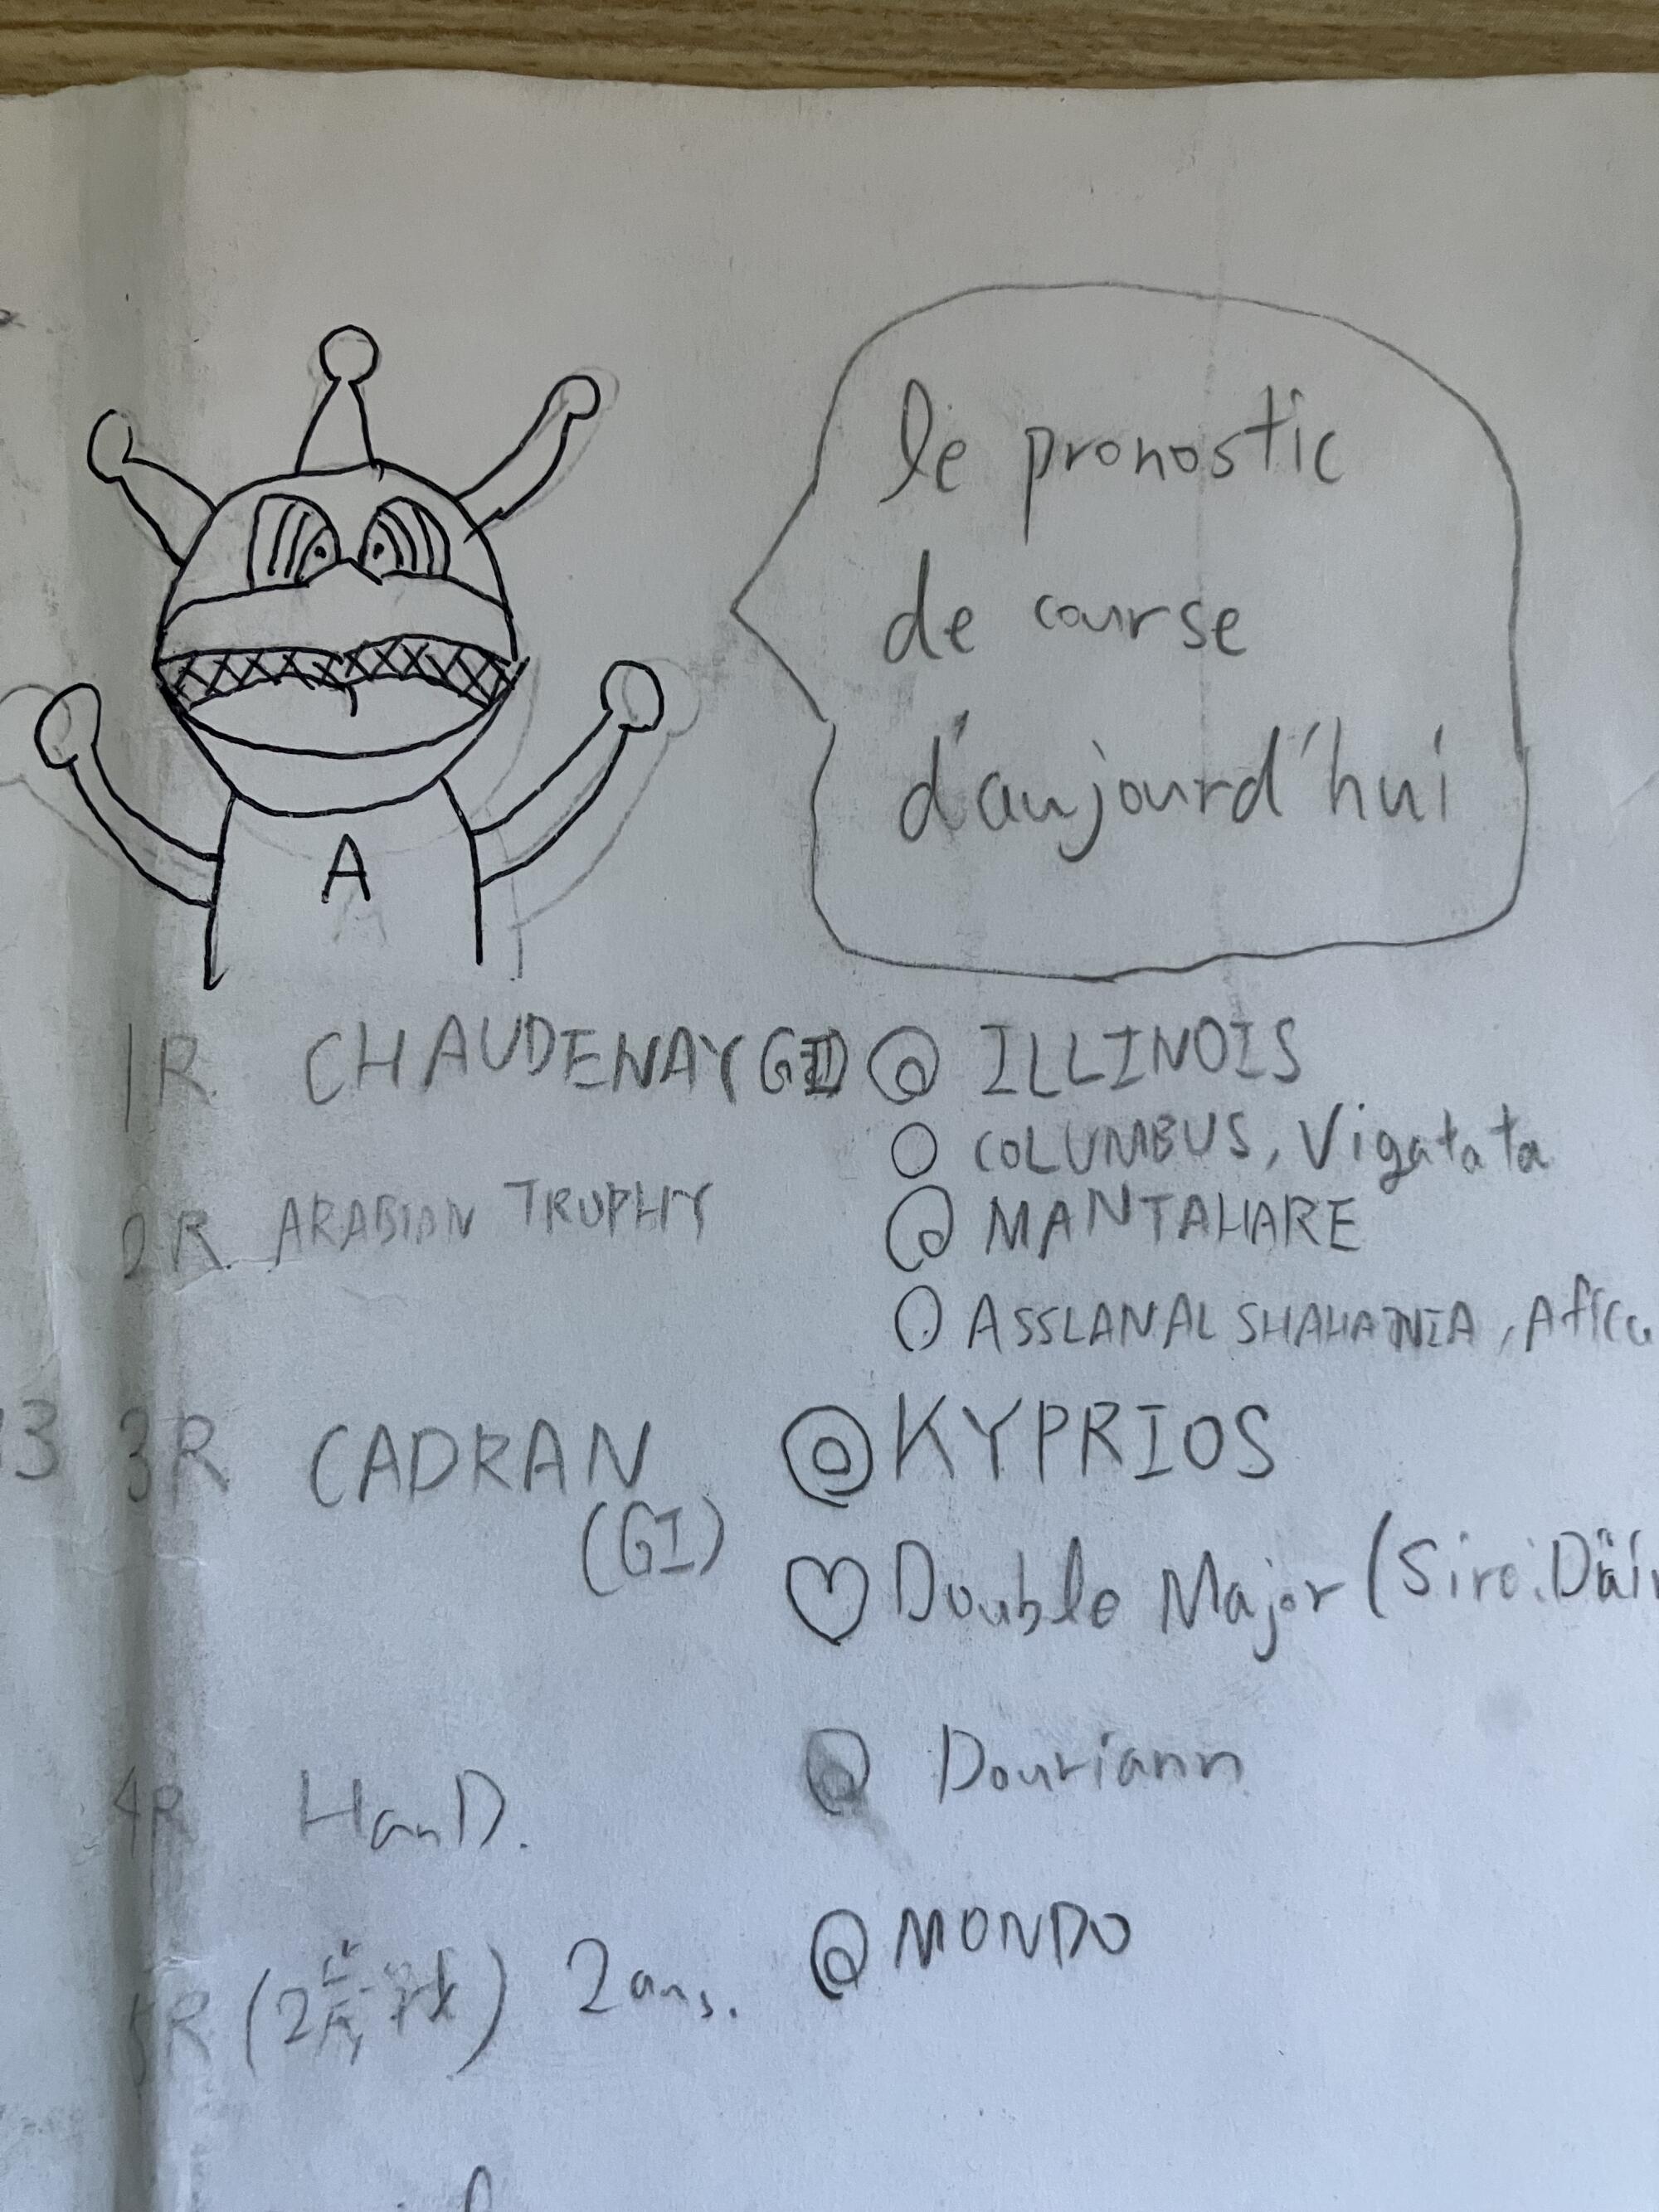 le pronostic
de course
d'aujourd'hui
A
1R CHAUDENAY GII ◎ ILLINOIS
○ COLUMBUS, Vigatata
2R. ARABIAN TROPHY ◎ MANTAHARE
○ ASSLANAL SHAHANIA,
13 3R CADRAN ◎ KYPRIOS
(GI)
♡ Double Major (Sire:
4R HanD. ◎ Douriann
5R (2歳戦) 2ans. ◎ MONDO